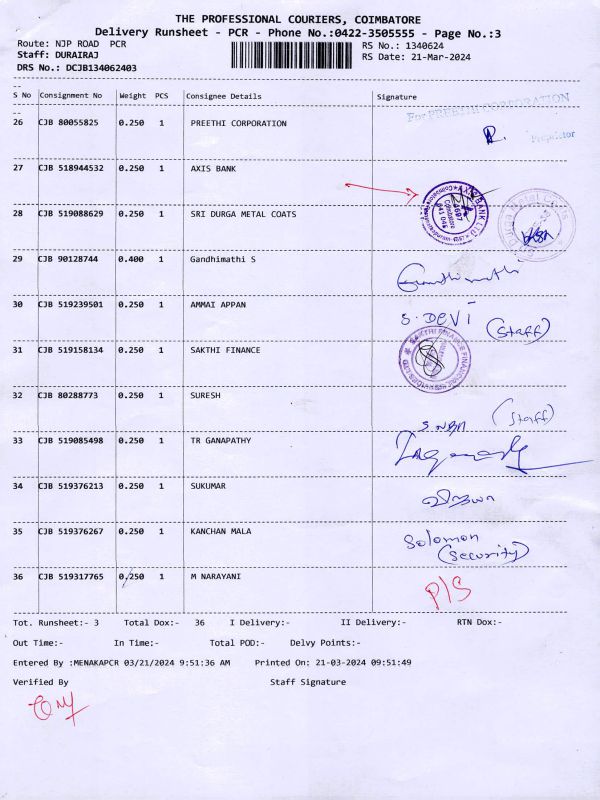 THE PROFESSIONAL COURIERS, COIMBATORE
Delivery Runsheet - PCR - Phone No.:0422-3505555 - Page No.:3
Route: NJP ROAD PCR RS No.: 1340624
Staff: DURAIRAJ RS Date: 21-Mar-2024
DRS No.: DCJB134062403
S No Consignment No Weight PCS Consignee Details Signature
For PREETHI CORPORATION
26 CJB 80055825 0.250 1 PREETHI CORPORATION
Proprietor
27 CJB 518944532 0.250 1 AXIS BANK
AXIS BANK LTD
Coimbatore
641 045
28 CJB 519088629 0.250 1 SRI DURGA METAL COATS
Sri Durga Metal Coats
29 CJB 90128744 0.400 1 Gandhimathi S
Gandhimathi
30 CJB 519239501 0.250 1 AMMAI APPAN
S. DEVI (Staff)
31 CJB 519158134 0.250 1 SAKTHI FINANCE
SAKTHI FINANCE FINANCIAL SERVICES LTD
32 CJB 80288773 0.250 1 SURESH
(Staff)
33 CJB 519085498 0.250 1 TR GANAPATHY
34 CJB 519376213 0.250 1 SUKUMAR
35 CJB 519376267 0.250 1 KANCHAN MALA
Solomon
(Security)
36 CJB 519317765 0.250 1 M NARAYANI
P/S
Tot. Runsheet:- 3 Total Dox:- 36 I Delivery:- II Delivery:- RTN Dox:-
Out Time:- In Time:- Total POD:- Delvy Points:-
Entered By :MENAKAPCR 03/21/2024 9:51:36 AM Printed On: 21-03-2024 09:51:49
Verified By Staff Signature